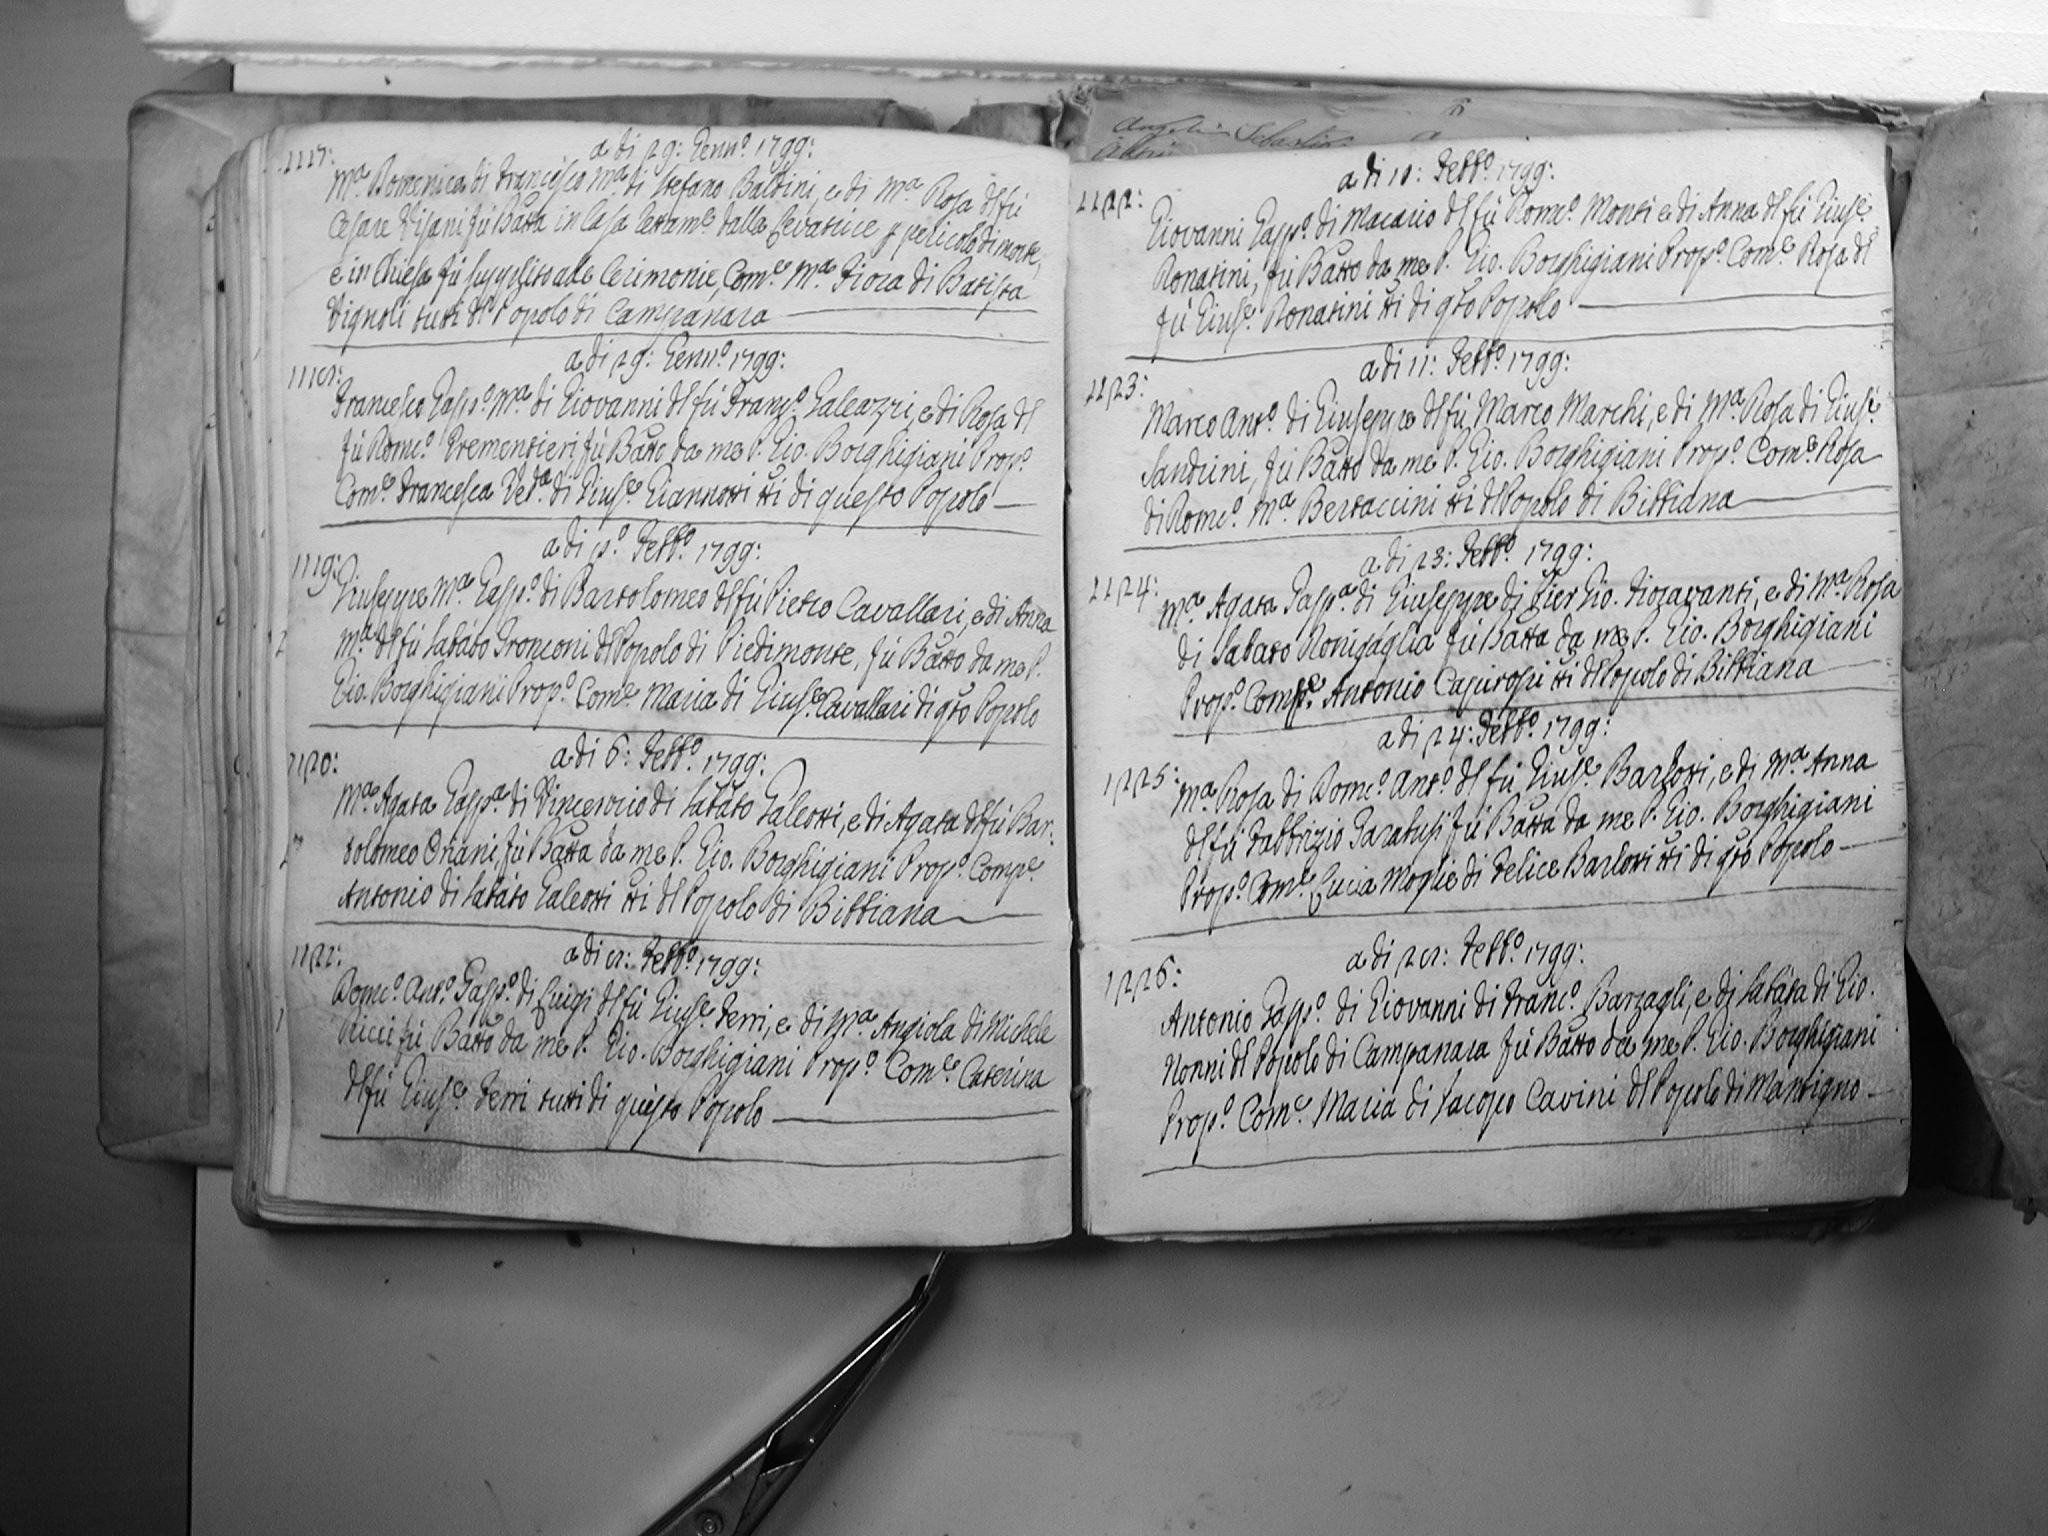 1217:
a di 29: Genn.º 1799:
M.ª Domenica di Francesco M.ª di Stefano Baldini, e di M.ª Rosa del fù
Cesare Visani fù Batta in Casa Certam.e dalla Levatrice p pericolo di morte,
e in Chiesa fù supplito alle Cerimonie, Com.e M.ª Fiora di Batista
Vignoli tutti del Popolo di Campanara
1218:
a di 29: Genn.º 1799:
Francesco Gasp.º M.ª di Giovanni del fù Franc.º Galeazzi, e di Rosa del
fù Dom.co Trementieri fù Batto da me P. Gio. Borghigiani Prop.º
Com.e Francesca Ved.ª di Gius.e Giannotti tti di questo Popolo
1219:
a di 2.º Febb.º 1799:
Giuseppe M.ª Gasp.º di Bartolomeo del fù Pietro Cavallari, e di Anna
M.ª del fù Sabato Tronconi del Popolo di Piedimonte, fù Batto da me P.
Gio. Borghigiani Prop.º Com.e Maria di Gius.e Cavallari di qto Popolo
1220:
a di 6: Febb.º 1799:
M.ª Agata Gasp.ª di Vincenzio di Sabato Galeotti, e di Agata del fù Bar-
tolomeo Oriani, fù Batta da me P. Gio. Borghigiani Prop.º Comp.e
Antonio di Sabato Galeotti tti del Popolo di Bibbiana
1221:
a di 8: Febb.º 1799:
Dom.co Ant.º Gasp.º di Luigi del fù Gius.e Ferri, e di M.ª Angiola di Michele
Ricci fù Batto da me P. Gio. Borghigiani Prop.º Com.e Caterina
del fù Gius.e Ferri tutti di questo Popolo
1222:
a di 10: Febb.º 1799:
Giovanni Gasp.º di Macario del fù Dom.co Monti e di Anna del fù Gius.e
Donatini, fù Batto da me P. Gio. Borghigiani Prop.º Com.e Rosa del
fù Gius.e Donatini tti di qto Popolo
1223:
a di 11: Febb.º 1799:
Marco Ant.º di Giuseppe del fù Marco Marchi, e di M.ª Rosa di Gius.e
Sandrini, fù Batto da me P. Gio. Borghigiani Prop.º Com.e Rosa
di Dom.co M.ª Bertaccini tti del Popolo di Bibbiana
1224:
a di 23: Febb.º 1799:
M.ª Agata Gasp.ª di Giuseppe di Pier Gio. Fioravanti, e di M.ª Rosa
di Sabato Ronigaglia fù Batta da me P. Gio. Borghigiani
Prop.º Comp.e Antonio Capirossi tti del Popolo di Bibbiana
1225:
a di 24: Febb.º 1799:
M.ª Rosa di Dom.co Ant.º del fù Gius.e Barlotti, e di M.ª Anna
del fù Fabbrizio Farabusi fù Batta da me P. Gio. Borghigiani
Prop.º Com.e Lucia Moglie di Felice Barlotti tti di qto Popolo
1226:
a di 28: Febb.º 1799:
Antonio Gasp.º di Giovanni di Franc.º Barzagli, e di Sabata di Gio.
Nonni del Popolo di Campanara fù Batto da me P. Gio. Borghigiani
Prop.º Com.e Maria di Jacopo Cavini del Popolo di Mantigno